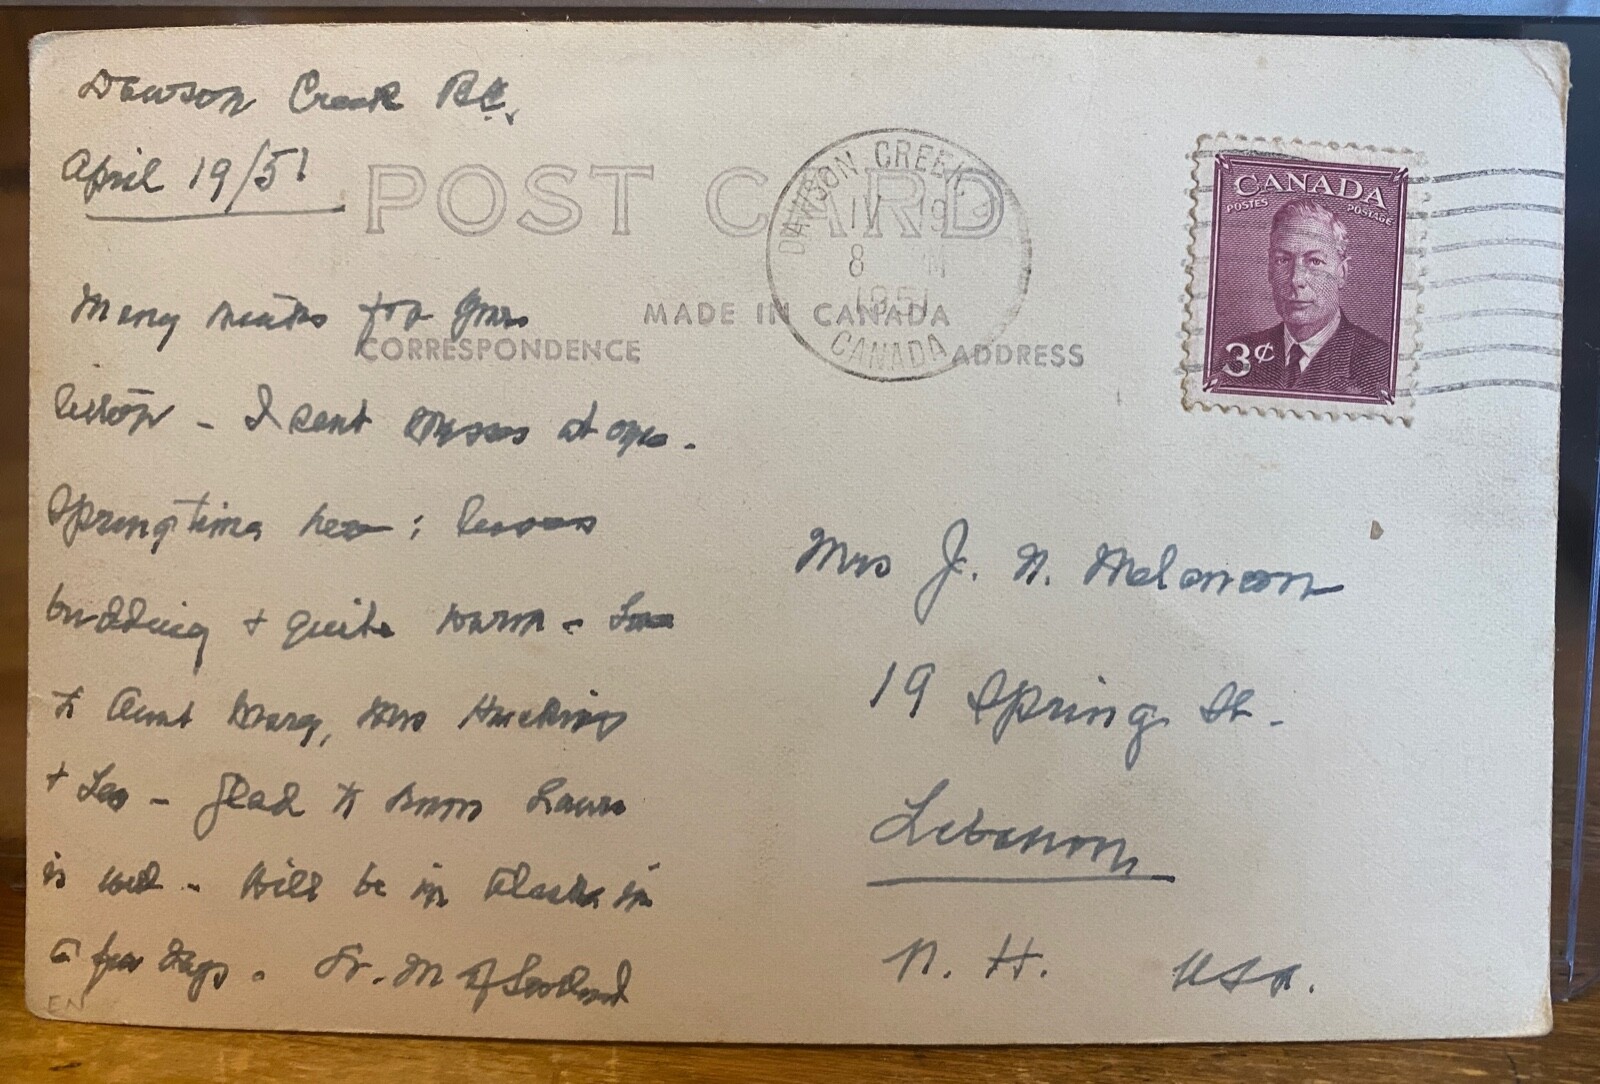 Dawson Creek B.C.
April 19/51
POST CARD
DAWSON CREEK.
IV 9
8 M
1951
CANADA
CANADA
POSTES POSTAGE
3¢
MADE IN CANADA
CORRESPONDENCE ADDRESS
Many thanks for your
letter - I sent at once.
Springtime here; leaves
budding + quite warm - Love
to Aunt Mary, Mrs Huckins
+ Leo - glad to know Laura
is well - Will be in Alaska in
a few days. Fr. M
Mrs J. N. Melanson
19 Spring St.
Lebanon
N. H. USA.
EN